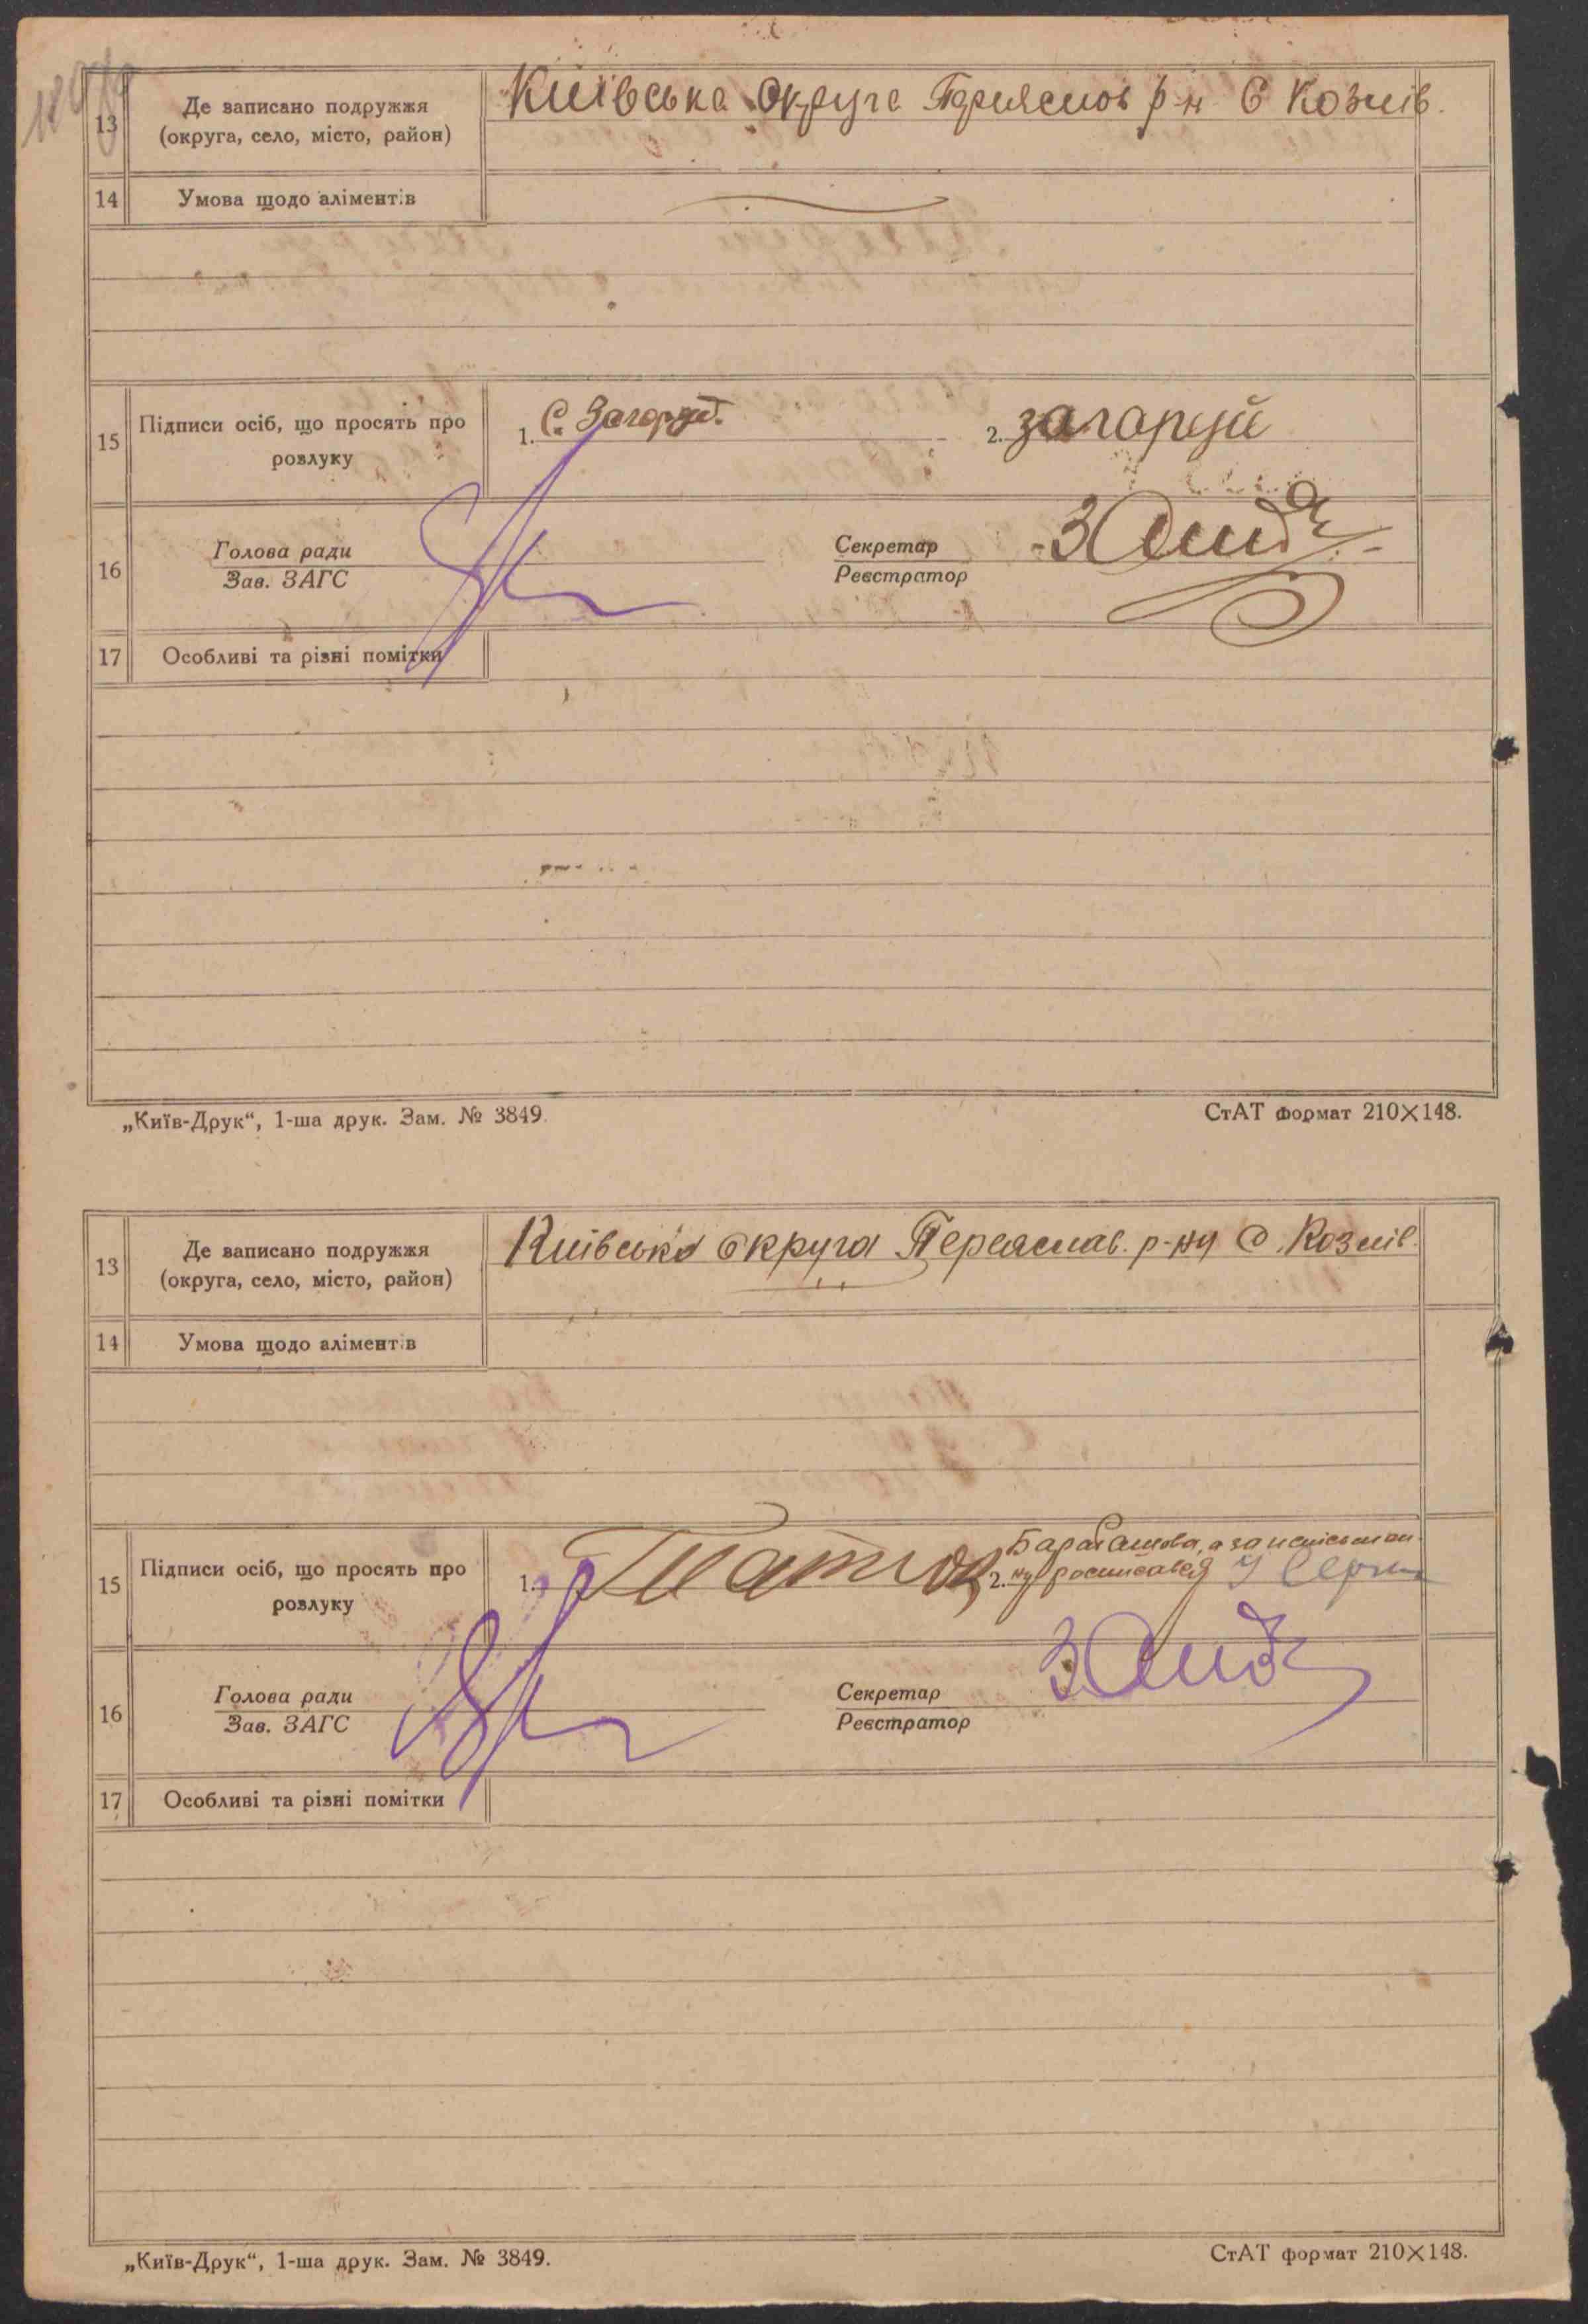 13 Де записано подружжя Київська округа р-н С Козлів.
(округа, село, місто, район)
14 Умова щодо аліментів
15 Підписи осіб, що просять про розлуку 1. С. Загоруй. 2. загоруй
16 Голова ради Секретар
Зав. ЗАГС Реєстратор
17 Особливі та різні помітки
„Київ-Друк“, 1-ша друк. Зам. № 3849.
СтАТ формат 210×148.
13 Де записано подружжя Київська округа Переяслав. р-ну С. Козлів.
(округа, село, місто, район)
14 Умова щодо аліментів
15 Підписи осіб, що просять про розлуку 1. 2.
16 Голова ради Секретар
Зав. ЗАГС Реєстратор
17 Особливі та різні помітки
„Київ-Друк“, 1-ша друк. Зам. № 3849.
СтАТ формат 210×148.